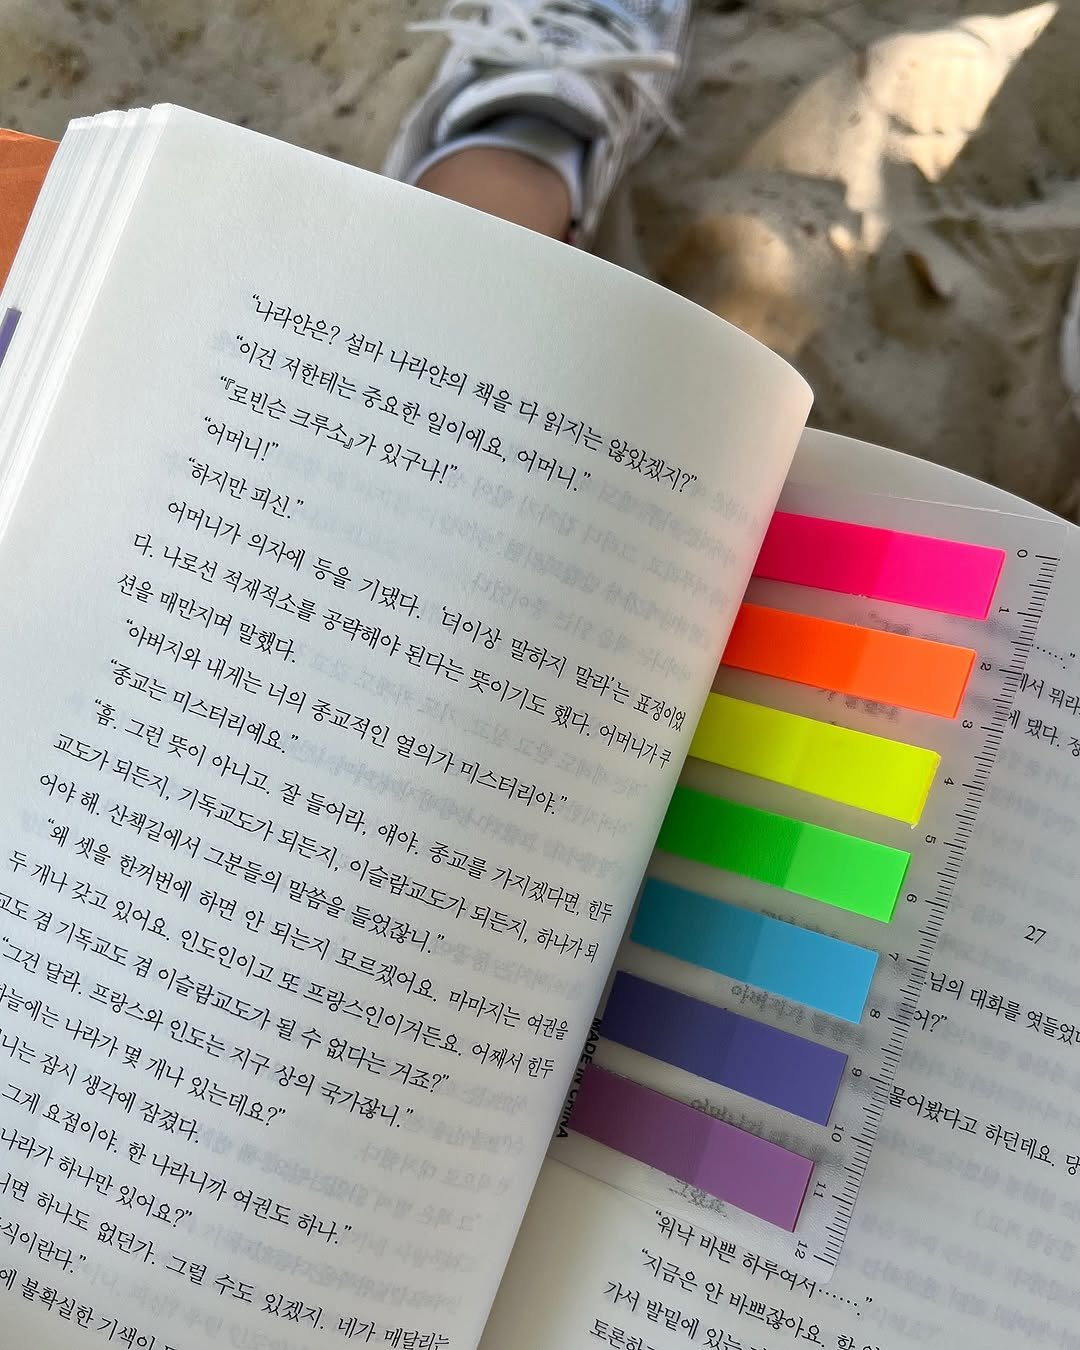 “나라얀은? 설마 나라얀의 책을 다 읽지는 않았겠지?”
“이건 저한테는 중요한 일이에요, 어머니.”
“『로빈슨 크루소』가 있구나!”
“어머니!”
“하지만 피신.”
어머니가 의자에 등을 기댔다. ‘더이상 말하지 말라’는 표정이었
다. 나로선 적재적소를 공략해야 된다는 뜻이기도 했다. 어머니가 쿠
션을 매만지며 말했다.
“아버지와 내게는 너의 종교적인 열의가 미스터리야.”
“종교는 미스터리예요.”
“흠. 그런 뜻이 아니고. 잘 들어라, 얘야. 종교를 가지겠다면, 힌두
교도가 되든지, 기독교도가 되든지, 이슬람교도가 되든지, 하나가 되
어야 해. 산책길에서 그분들의 말씀을 들었잖니.”
“왜 셋을 한꺼번에 하면 안 되는지 모르겠어요. 마마지는 여권을
두 개나 갖고 있어요. 인도인이고 또 프랑스인이거든요. 어째서 힌두
교도 겸 기독교도 겸 이슬람교도가 될 수 없다는 거죠?”
“그건 달라. 프랑스와 인도는 지구 상의 국가잖니.”
하늘에는 나라가 몇 개나 있는데요?”
머니는 잠시 생각에 잠겼다.
그게 요점이야. 한 나라니까 여권도 하나.”
나라가 하나만 있어요?”
니면 하나도 없던가. 그럴 수도 있겠지. 네가 매달리는
식이란다.”
에 불확실한 기색이
0
1
2
3
4
5
6
7
8
9
10
11
12
MADE IN CHINA
……”
에서 뭐라
에 댔다. 정
27
님의 대화를 엿들었
어?”
물어봤다고 하던데요. 당
“워낙 바쁜 하루여서……”
“지금은 안 바쁘잖아요. 할
가서 발밑에 있는
토론하